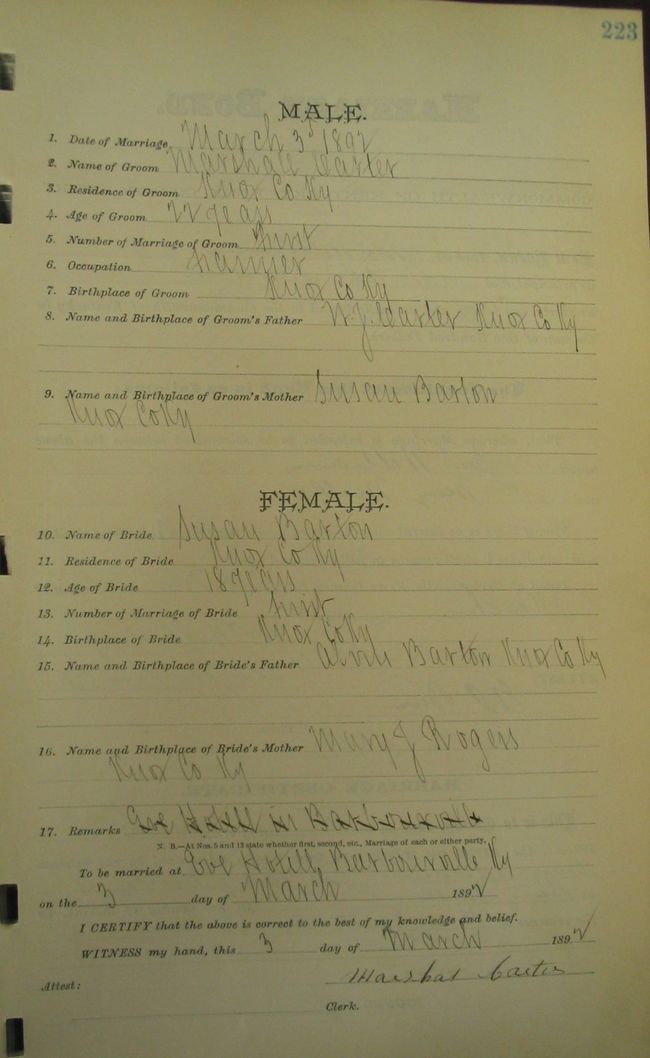 223
MALE.
1. Date of Marriage March 3d 1892
2. Name of Groom Marshall Carter
3. Residence of Groom Knox Co Ky
4. Age of Groom 22 years
5. Number of Marriage of Groom First
6. Occupation Farmer
7. Birthplace of Groom Knox Co Ky
8. Name and Birthplace of Groom's Father W. J. Carter Knox Co Ky
9. Name and Birthplace of Groom's Mother Susan Barton
Knox Co Ky
FEMALE.
10. Name of Bride Susan Barton
11. Residence of Bride Knox Co Ky
12. Age of Bride 18 years
13. Number of Marriage of Bride First
14. Birthplace of Bride Knox Co Ky
15. Name and Birthplace of Bride's Father Barton Knox Co Ky
16. Name and Birthplace of Bride's Mother Mary J Rogers
Knox Co Ky
17. Remarks Eve Hotell in Barbourville
N. B.—At Nos. 5 and 13 state whether first, second, etc., Marriage of each or either party.
To be married at Eve Hotell, Barbourville Ky
on the 3 day of March 1892
I CERTIFY that the above is correct to the best of my knowledge and belief.
WITNESS my hand, this 3 day of March 1892
Marshal Carter
Attest:
Clerk.